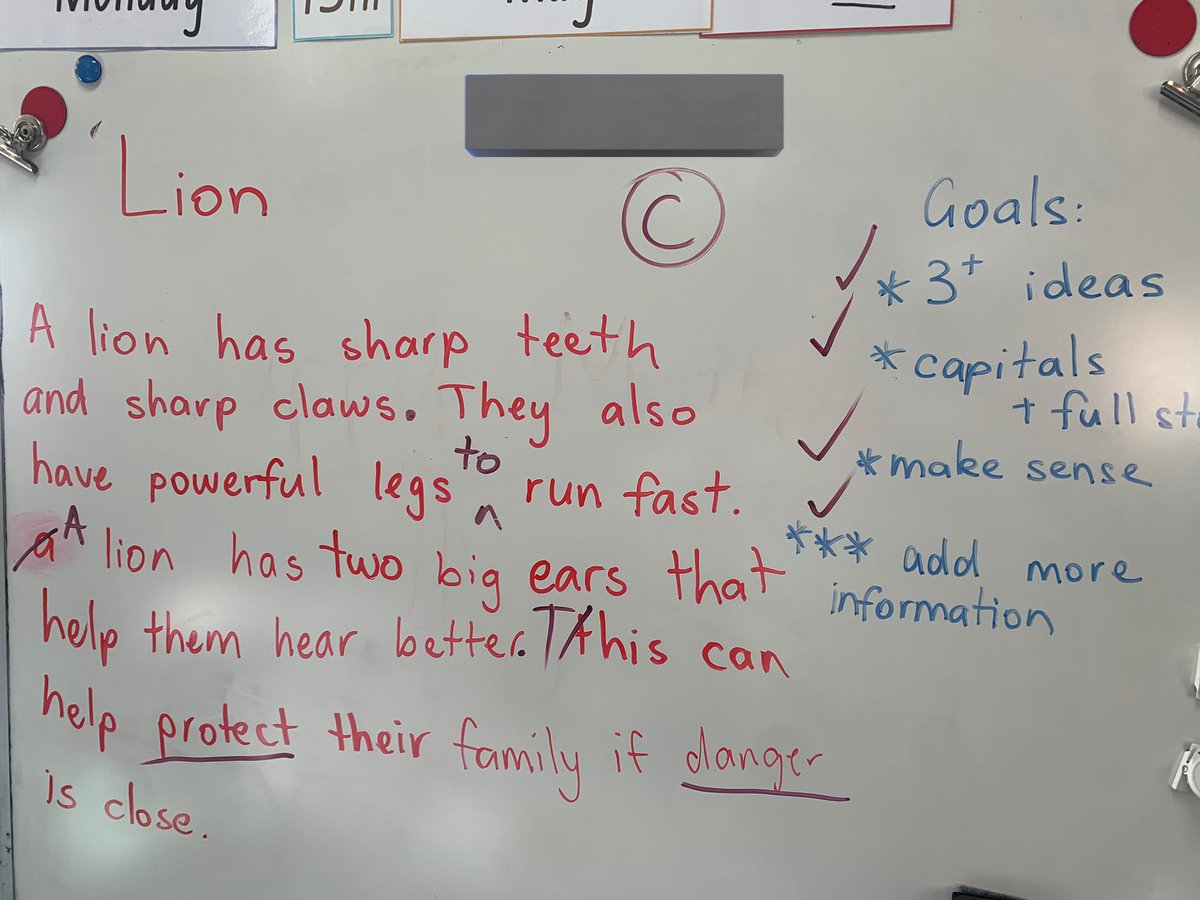 Monday 13th May
Lion
C
A lion has sharp teeth
and sharp claws. They also
have powerful legs to run fast.
A lion has two big ears that
help them hear better. This can
help protect their family if danger
is close.
Goals:
* 3+ ideas
* capitals
+ full
* make sense
*** add more
information